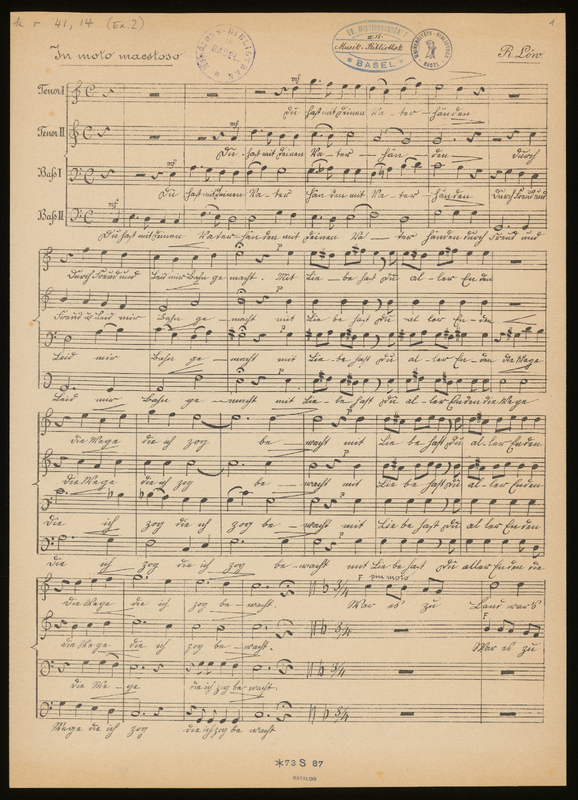 kr 41, 14 (Ex. 2)
1
In moto maestoso
BASEL
Musik-Bibliothek
BASEL
UNIVERSITÄTS-BIBLIOTHEK
BASEL
R. Löw.
Tenor I
mf
Du hast mit deinen Va - ter - händen
Tenor II
mf
Du - hast mit deinen Va - ter - hän - den durch
Baß I
mf
Du hast mit deinen Va - ter händen mit Va - ter - händen durch Freud und
Baß II
mf
Du hast mit deinen Vaterhänden mit deinen Va - ter händen durch Freud und
durch Freud und Leid mir Bahn ge - macht. Mit Lie - be hast Du al - ler Enden
Freud u Leid mir Bahn ge - macht mit Lie be hast Du al - ler En - den
Leid mir Bahn ge - macht mit Lie - be hast Du al - ler En - den die Wege
Leid mir Bahn ge - macht mit Lie - be hast Du al - ler Enden die Wege
die Wege die ich zog be - wacht mit Lie be hast Du al - ler Enden
die Wege die ich zog be - wacht mit Lie be hast Du al - ler Enden
die ich zog die ich zog be - wacht mit Lie be hast Du al ler Enden
die ich zog die ich zog be - wacht mit Lie be hast Du aller Enden die
die Wege die ich zog be - wacht.
F piu moto
War es zu Land war's
die Wege die ich zog be - wacht.
F
War es zu
die We - ge die ich zog be wacht.
Wege die ich zog die ich zog be wacht
*73 S 87
KATALOG